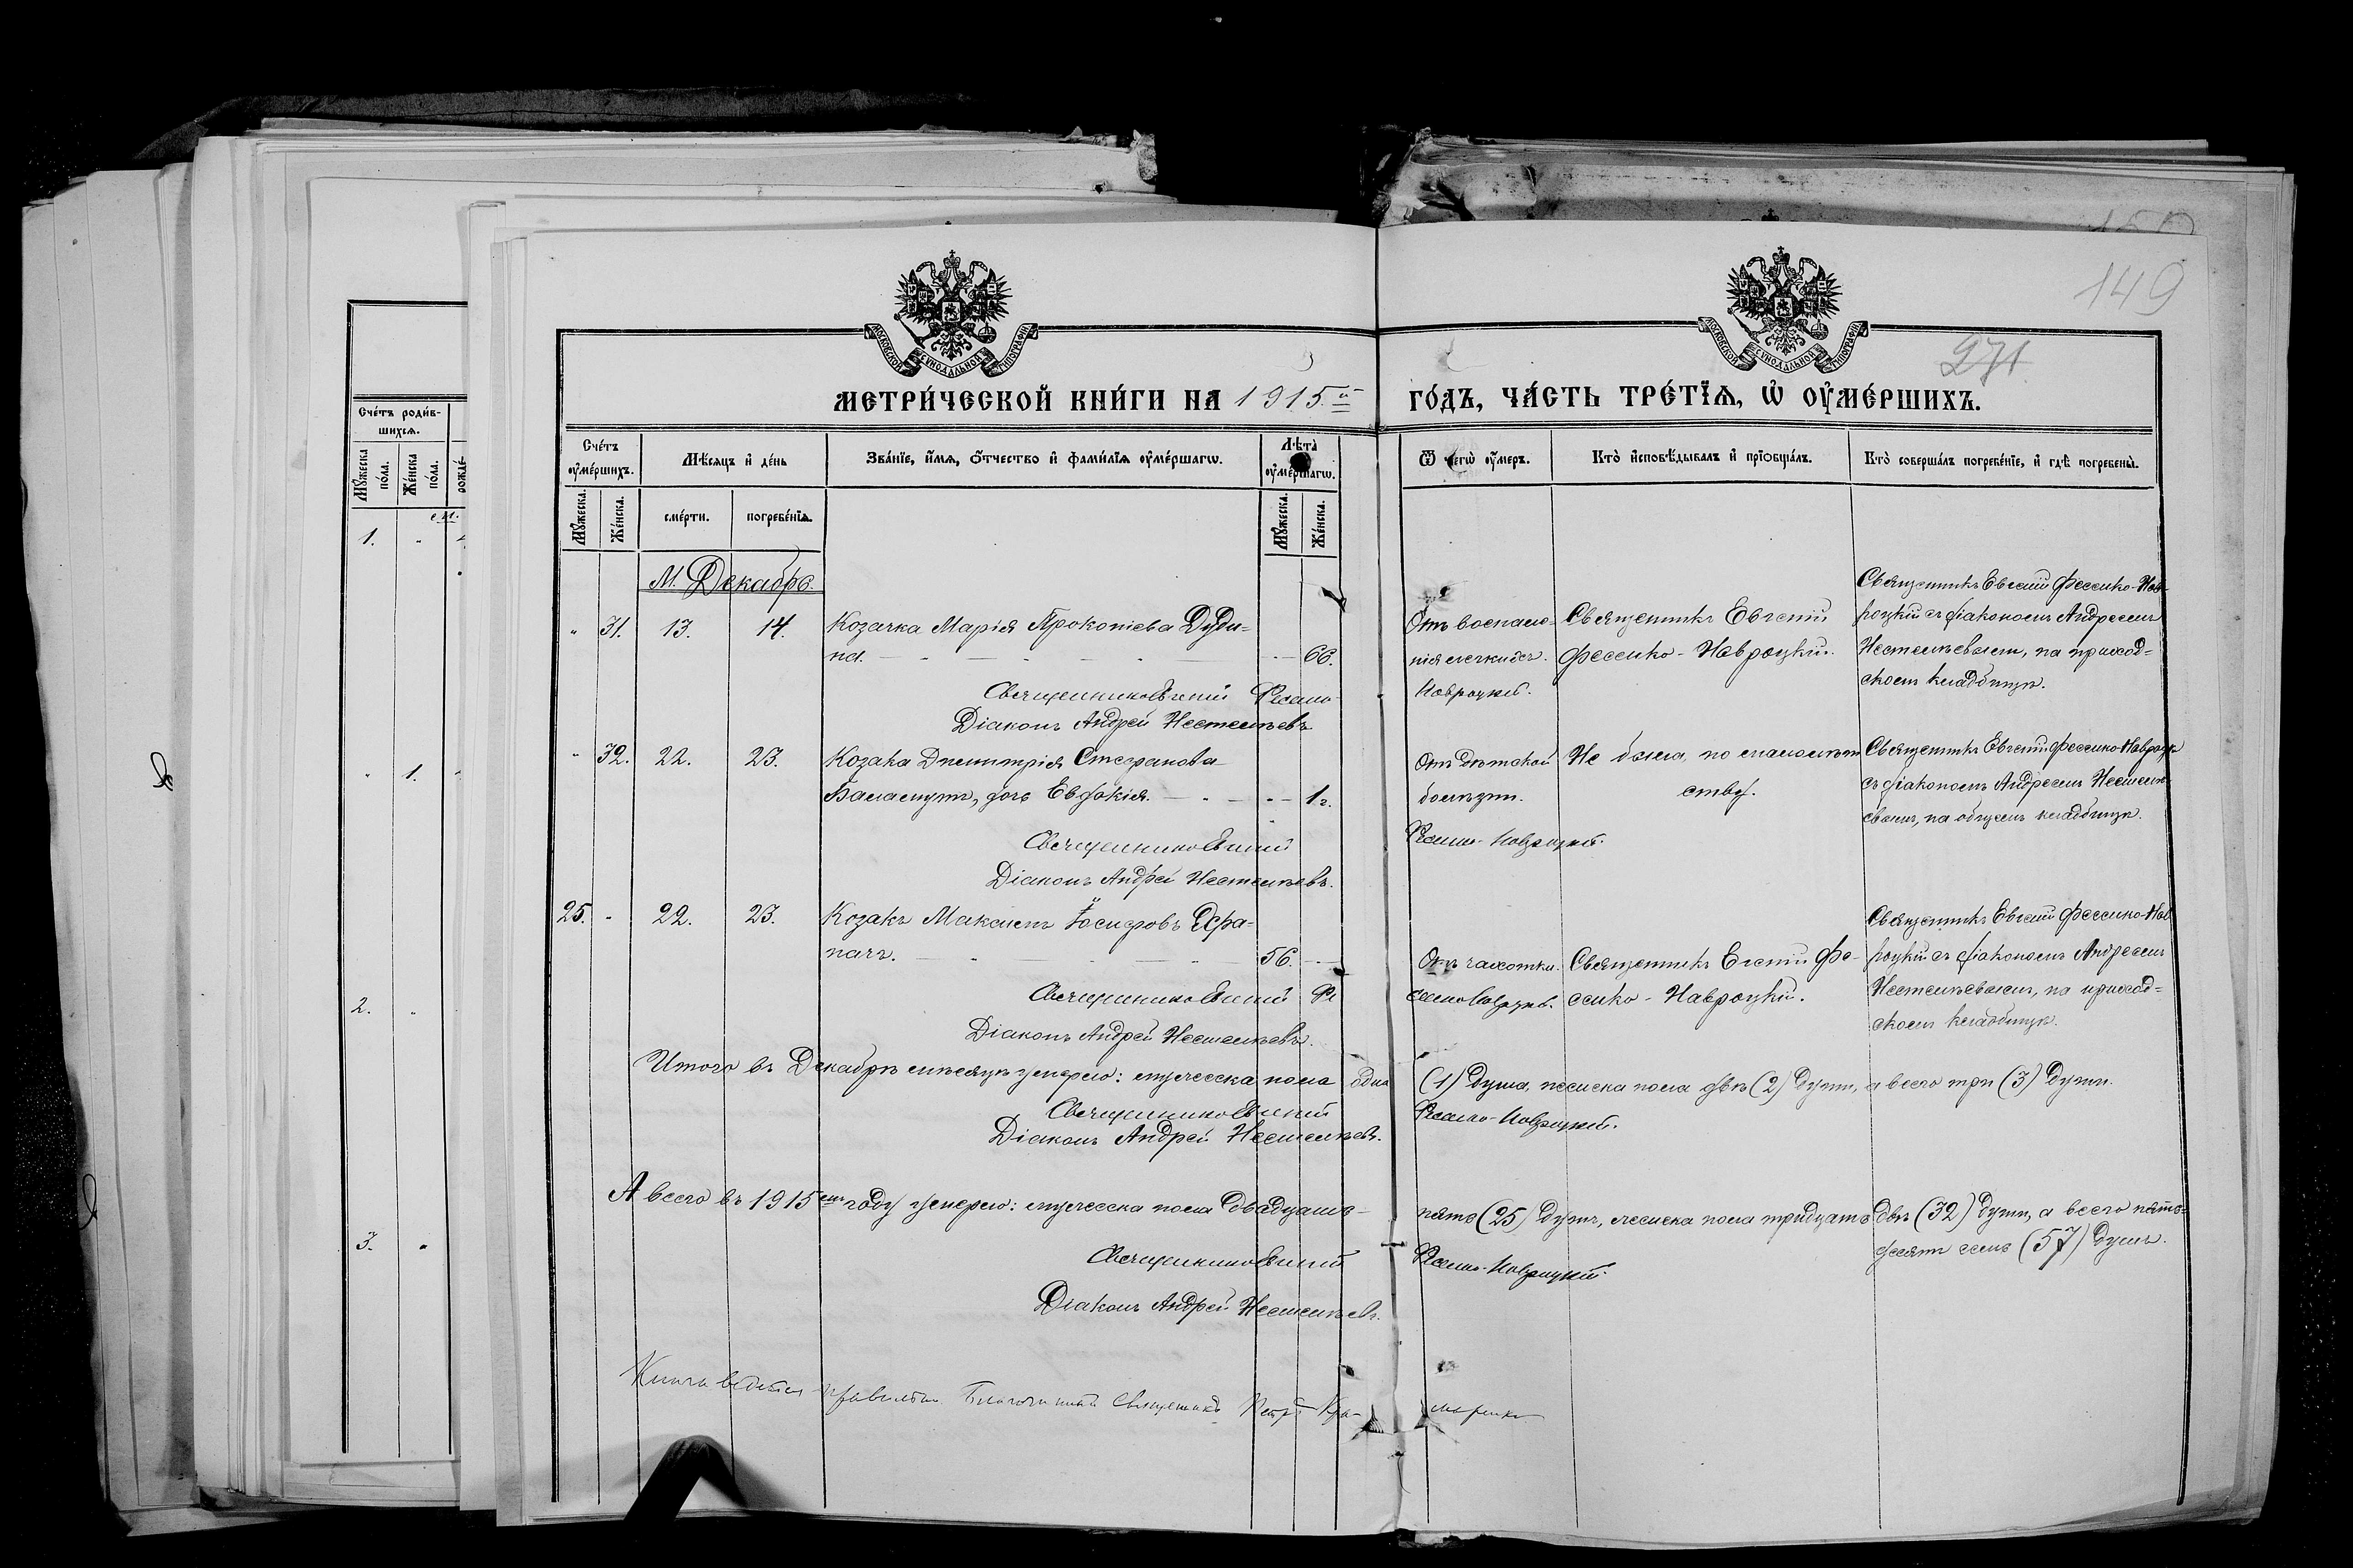 149
271
МОСКОВСКОЙ СѴНОДАЛЬНОЙ ТИПОГРАФІИ
МОСКОВСКОЙ СѴНОДАЛЬНОЙ ТИПОГРАФІИ
МЕТРИ́ЧЕСКОЙ КНИ́ГИ НА 1915.й ГО́ДЪ, ЧА́СТЬ ТРЕ́ТЇѦ, Ѡ҆ ОУ҆МЕ́РШИХЪ.
Сче́тъ роди́в-
шихсѧ.
Мꙋ́жеска по́ла.
Же́нска по́ла.
рожде-
1.
1.
2.
3.
Сче́тъ оу҆ме́ршихъ.
Мѣ́сѧцъ и҆ де́нь
Зва́нїе, и҆́мѧ, ѻ҆́тчество и҆ фами́лїѧ оу҆ме́ршагѡ.
Лѣта̀ оу҆ме́ршагѡ.
Ѿ чегѡ̀ оу҆́меръ.
Кто̀ и҆сповѣ́дывалъ и҆ прїѡбща́лъ.
Кто̀ соверша́лъ погребе́нїе, и҆ гдѣ̀ погребены̀.
Мꙋ́жеска.
Же́нска.
сме́рти.
погребе́нїѧ.
Мꙋ́жеска.
Же́нска.
М. Декабрь.
" 31. 13. 14. Козачка Марія Прокопіева Дуди-
на. 66.
Отъ воспале-
нія легкихъ.
Священникъ Евгеній
Фесенко-Навроцкій.
Священникъ Евгеній Фесенко-Нав-
роцкій съ діакономъ Андреемъ
Нестелѣевымъ, на приход-
скомъ кладбищѣ.
Священникъ Евгеній Фесенко-Навроцкій.
Діаконъ Андрей Нестелѣевъ
" 32. 22. 23. Козака Димитрія Стефанова
дочь Евдокія. 1 г.
Отъ дѣтской
болѣзни.
Не была, по малолѣт
ству.
Священникъ Евгеній Фесенко-Навроцк
съ діакономъ Андреемъ Нестелѣ-
евымъ, на общемъ кладбищѣ.
Священникъ Евгеній Фесенко-Навроцкій.
Діаконъ Андрей Нестелѣевъ.
25. " 22. 23. Козакъ Максимъ Іосифовъ
56.
Отъ чахотки.
Священникъ Евгеній Фе-
сенко-Навроцкій.
Священникъ Евгеній Фесенко-Нав
роцкій съ діакономъ Андреемъ
Нестелѣевымъ, на приход-
скомъ кладбищѣ.
Священникъ Евгеній Фесенко-Навроцкій.
Діаконъ Андрей Нестелѣевъ.
Итого въ Декабрѣ мѣсяцѣ умерло: мужеска пола одна (1) душа, женска пола двѣ (2) души, а всего три (3) души.
Священникъ Евгеній Фесенко-Навроцкій.
Діаконъ Андрей Нестелѣевъ.
А всего въ 1915омъ году умерло: мужеска пола двадцать- пять (25) душъ, женска пола тридцать двѣ (32) души, а всего пять-
десятъ семь (57) душъ.
Священникъ Евгеній Фесенко-Навроцкій.
Діаконъ Андрей Нестелѣевъ.
Книга ведется правильно Благочинный Священникъ Петръ